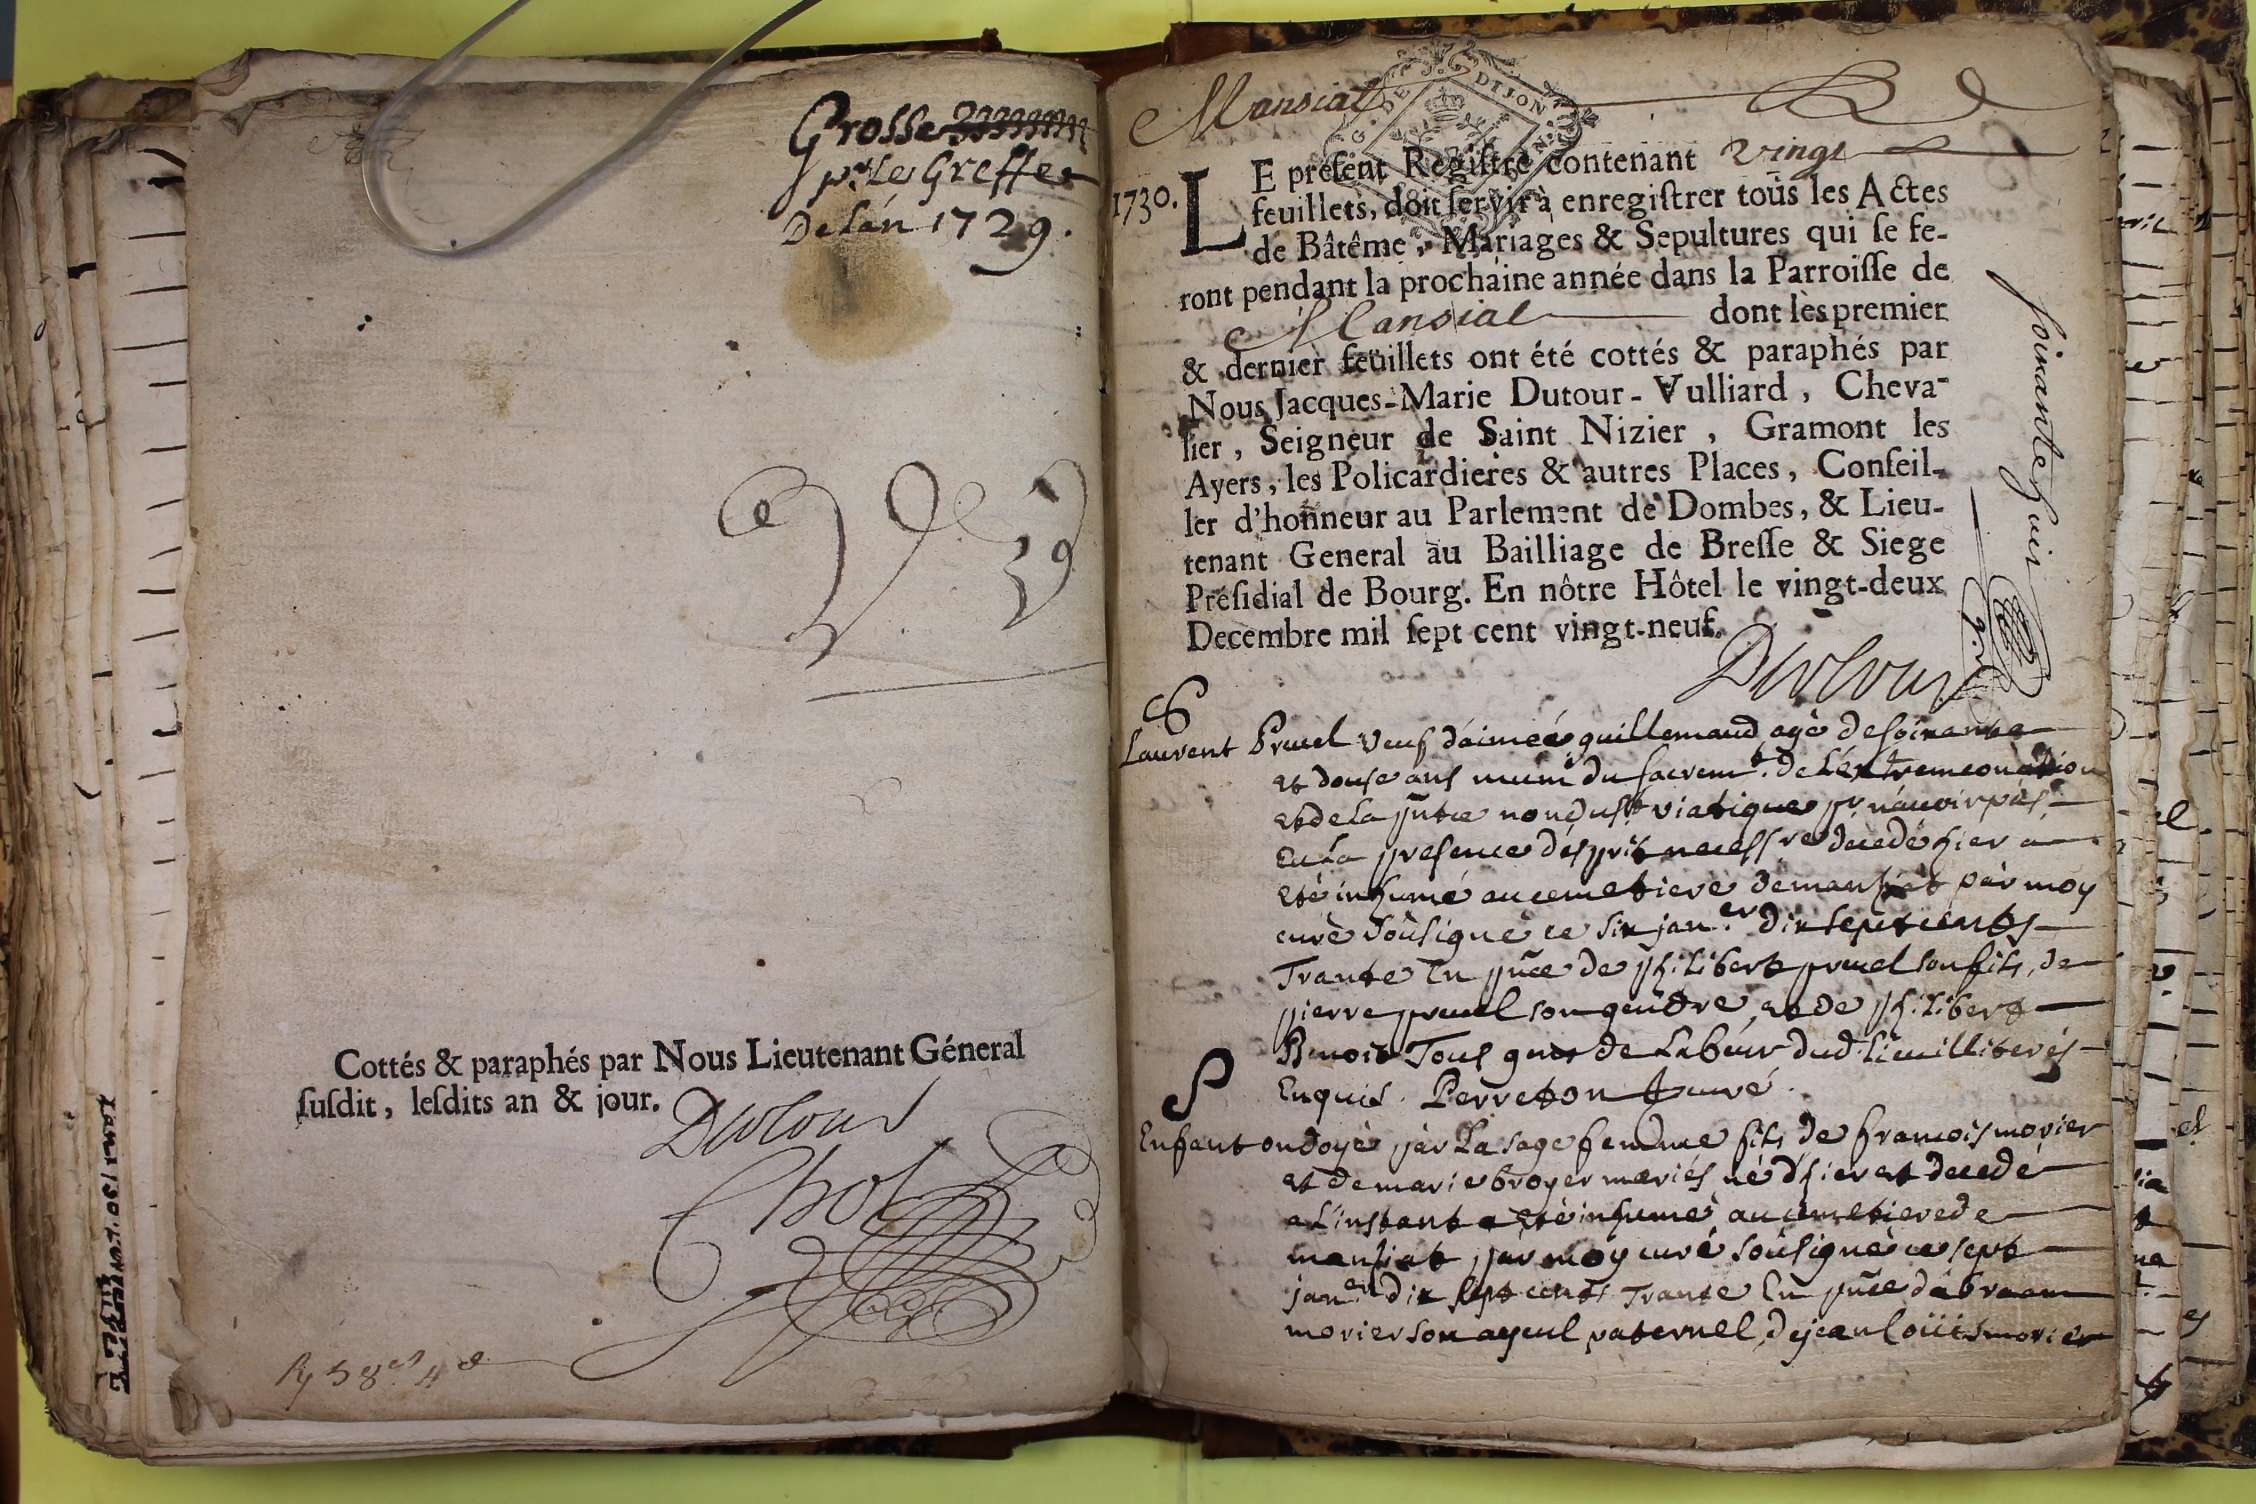 Grosse
pr le Greffe
De l'an 1729.
Cottés & paraphés par Nous Lieutenant Géneral
susdit, lesdits an & jour.
Dutour
Mansiat
G. DE DIJON
1730.
LE present Registre contenant vingt
feuillets, doit servir à enregistrer tous les Actes
de Bâtême, Mariages & Sepultures qui se fe-
ront pendant la prochaine année dans la Parroisse de
Mansiat dont les premier
& dernier feüillets ont été cottés & paraphés par
Nous Jacques-Marie Dutour-Vulliard, Cheva-
lier, Seigneur de Saint Nizier, Gramont les
Ayers, les Policardieres & autres Places, Conseil-
ler d'honneur au Parlement de Dombes, & Lieu-
tenant General au Bailliage de Bresse & Siege
Présidial de Bourg. En nôtre Hôtel le vingt-deux
Decembre mil sept cent vingt-neuf.
soixante huit
Dutour
S
Laurent Pruel veuf d'aimeé guillemaud agè de soixante
et douse ans muni du sacremt. de L'extremeonction
et de La pntce non du st viatique pr n'auoir pas
Eu La presence d'esprit necessre decedé hier a
eté inhumé au cemetiere de manziat par moy
curè soûsignè ce six janer. dix sept cents
Trante En pnce de philibert pruel son fils, de
pierre pruel son gendre et de philibert
Benoit Tous gens de Labeur dud. lieu illiterés
Enquis. Perreton curé.
S
Enfant ondoyè par La sage femme fils de francois morier
et de marie broyer mariés né d'hier et decedé
a L'instant a eté inhumé au cemetiere de
manziat par moy curé soûsignè ce sept
janer dix sept cents Trante En pnce d'abraam
morier son ayeul paternel, de jean Loüis morier